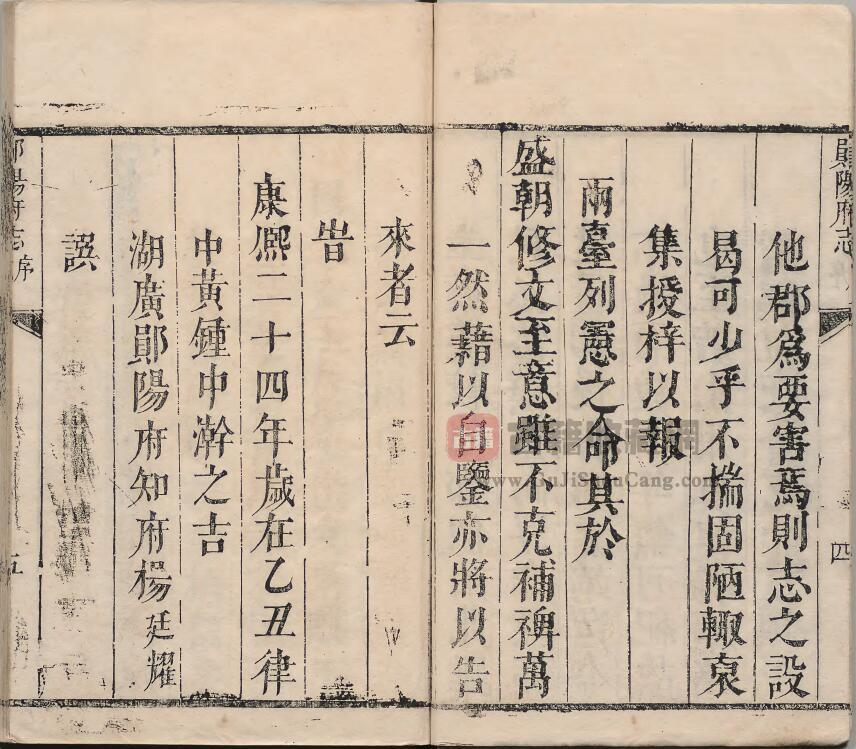 鄖陽府志
四
他郡爲要害焉則志之設
曷可少乎不揣固陋輙裒
集授梓以報
兩臺列憲之命其於
盛朝修文至意雖不克補裨萬
一然藉以自鑒亦將以告
來者云
旹
康熈二十四年歲在乙丑律
中黃鍾中澣之吉
湖廣鄖陽府知府楊廷耀
譔
鄖陽府志
序
五
www.GuJiShuCang.com